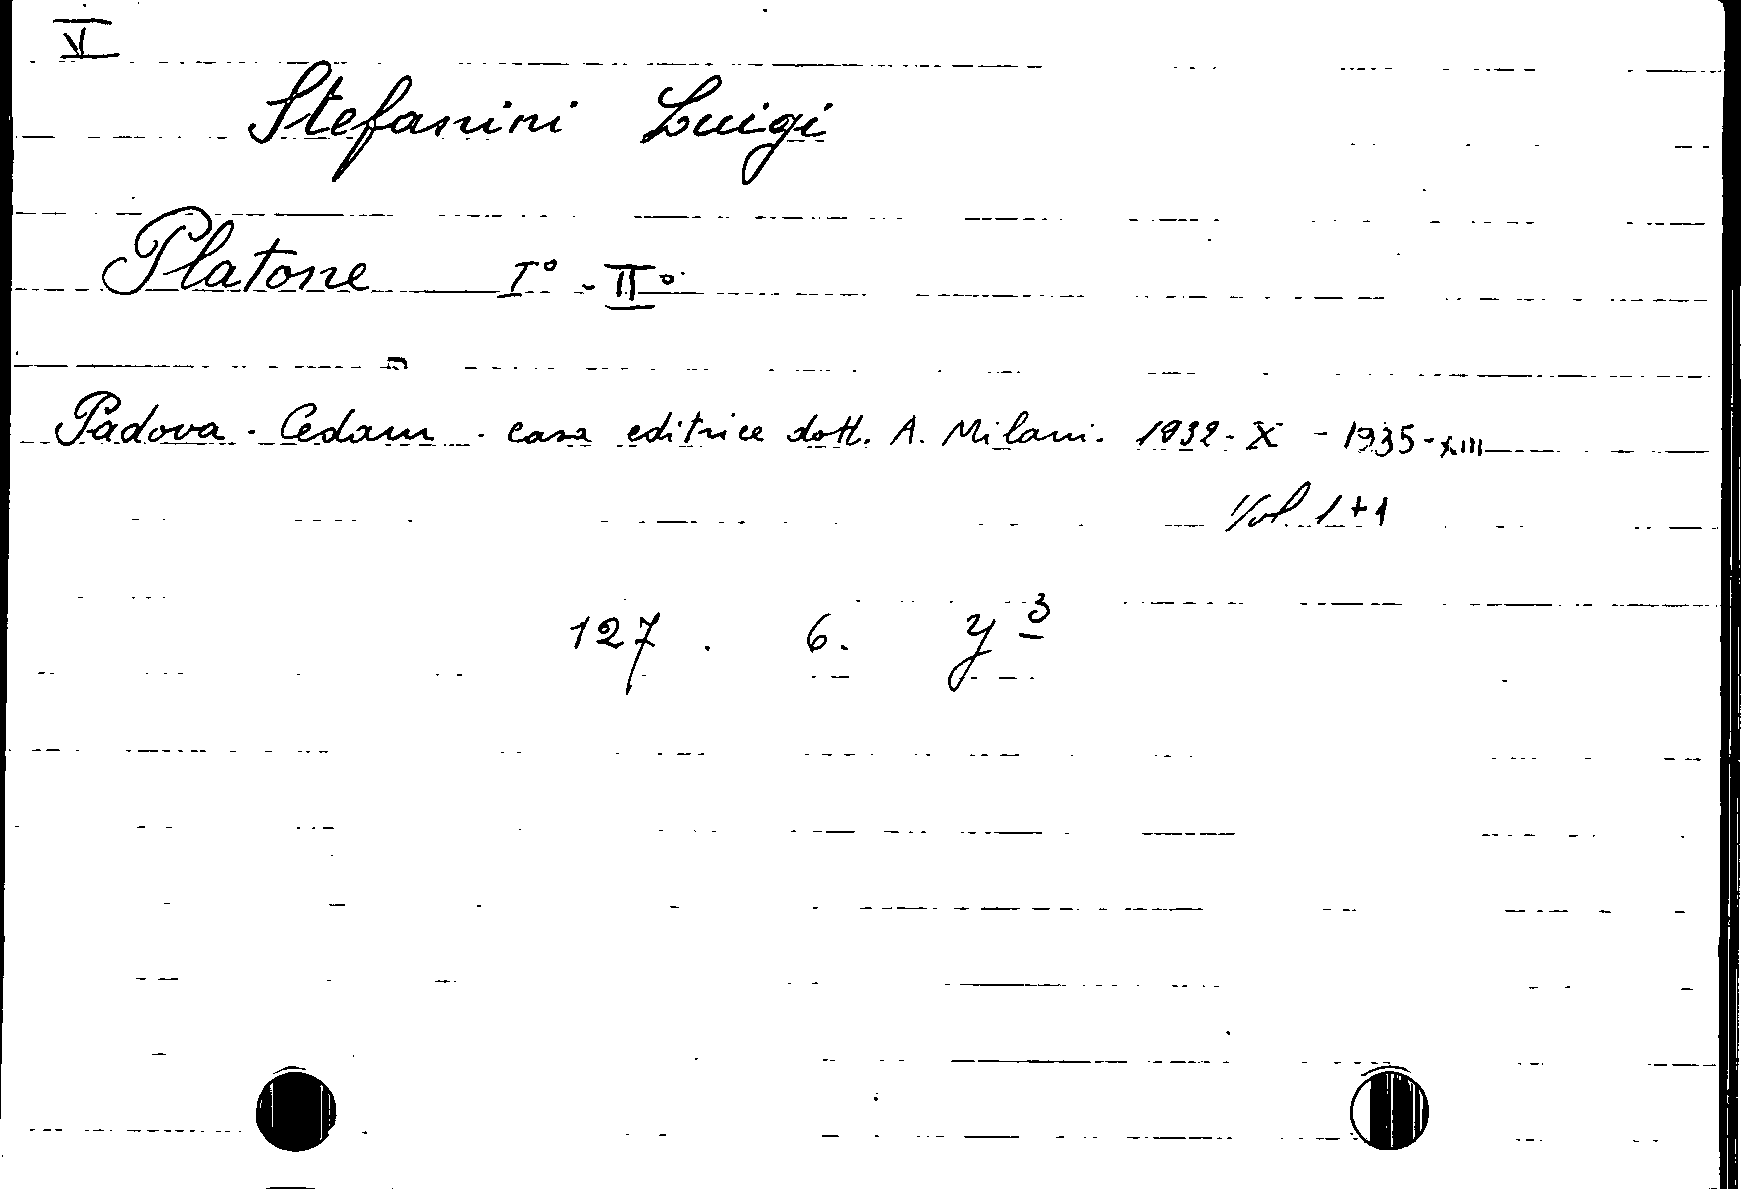 V
Stefanini Luigi
Platone I° - II°
Padova - Cedam - casa editrice dott. A. Milani. 1932 - X - 1935 - XIII
Vol. 1 + 1
127 . 6. y 3